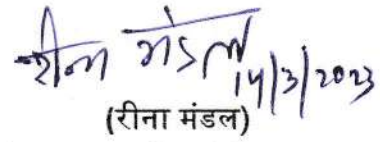 रीना मंडल
14/3/2023
(रीना मंडल)